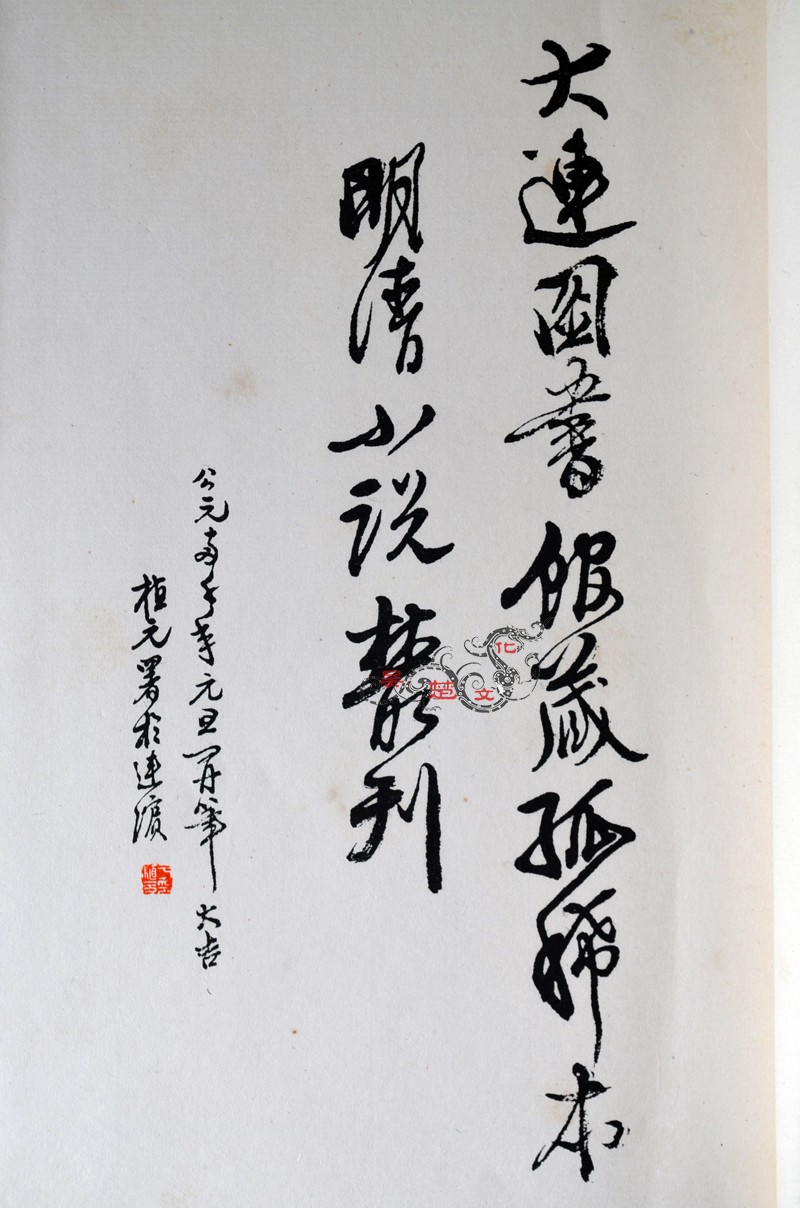 大連图書館藏孤稀本
明清小説叢刊
公元两千年元旦開筆大吉
植元署於連濱
吴楚文化